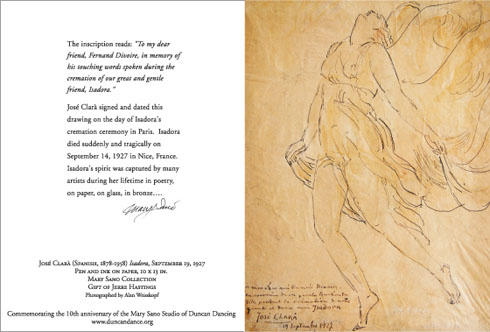 The inscription reads: "To my dear
friend, Fernand Divoire, in memory of
his touching words spoken during the
cremation of our great and gentle
friend, Isadora."
José Clarà signed and dated this
drawing on the day of Isadora's
cremation ceremony in Paris. Isadora
died suddenly and tragically on
September 14, 1927 in Nice, France.
Isadora's spirit was captured by many
artists during her lifetime in poetry,
on paper, on glass, in bronze....
Mary Sano
José Clarà (Spanish, 1878-1958) Isadora, September 19, 1927
Pen and ink on paper, 10 x 13 in.
Mary Sano Collection
Gift of Jerre Hastings
Photographed by Alan Weisskopf
Commemorating the 10th anniversary of the Mary Sano Studio of Duncan Dancing
www.duncandance.org
José Clarà
19 Septembre 1927